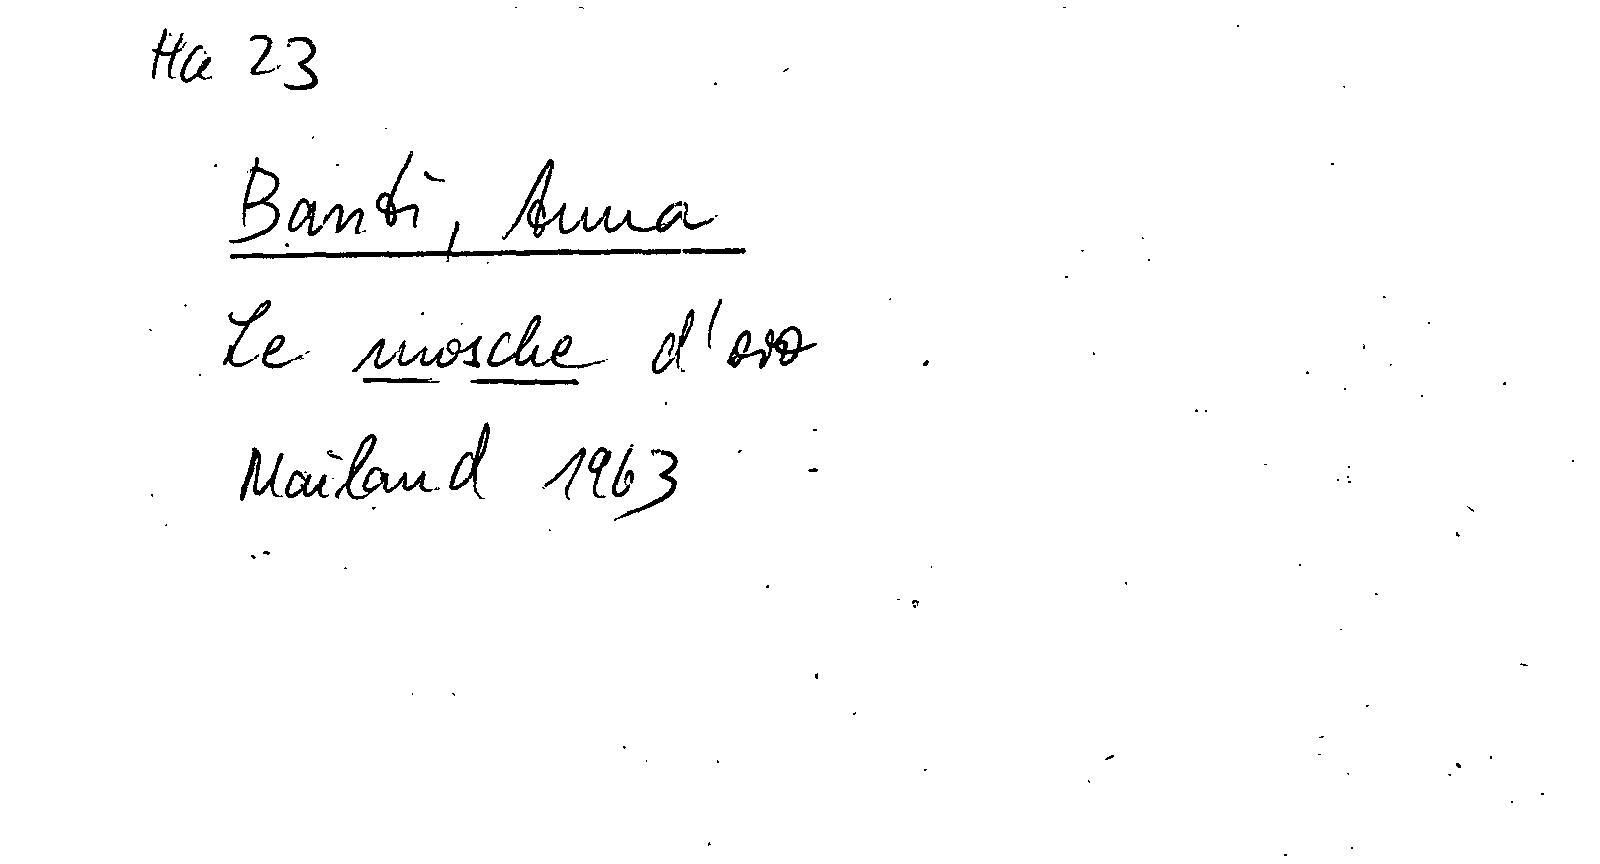 Ha 23
Banti, Anna
Le mosche d'oro
Mailand 1963